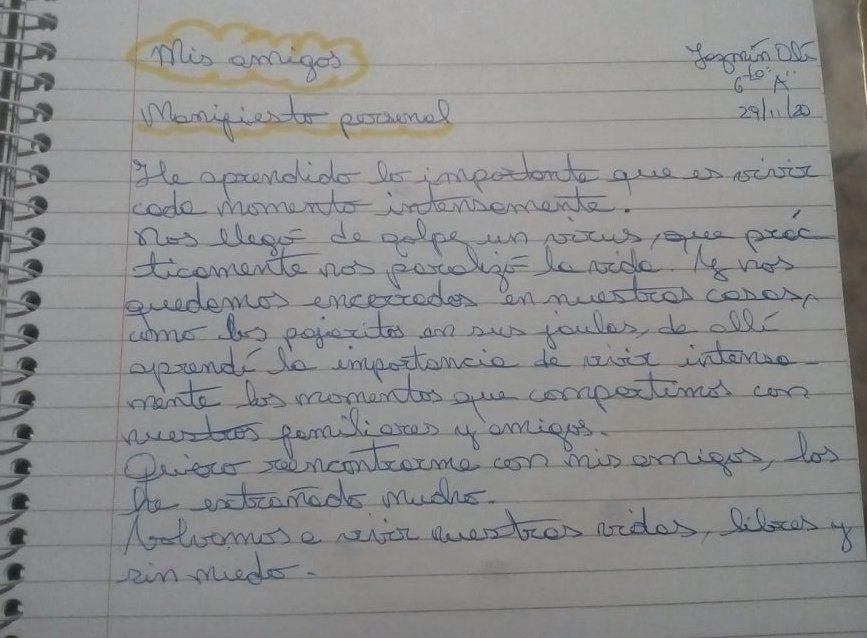 Mis amigos
Jazmín Olé
6to "A"
29/11/20
Manifiesto personal
He aprendido lo importante que es vivir
cada momento intensamente.
Nos llegó de golpe un virus, que prác
ticamente nos paralizó la vida. Y nos
quedamos encerrados en nuestras casas,
como los pajaritos en sus jaulas, de allí
aprendí la importancia de vivir intensa-
mente los momentos que compartimos con
nuestros familiares y amigos.
Quiero reencontrarme con mis amigos, los
he extrañado mucho.
Volvamos a vivir nuestras vidas, libres y
sin miedo.